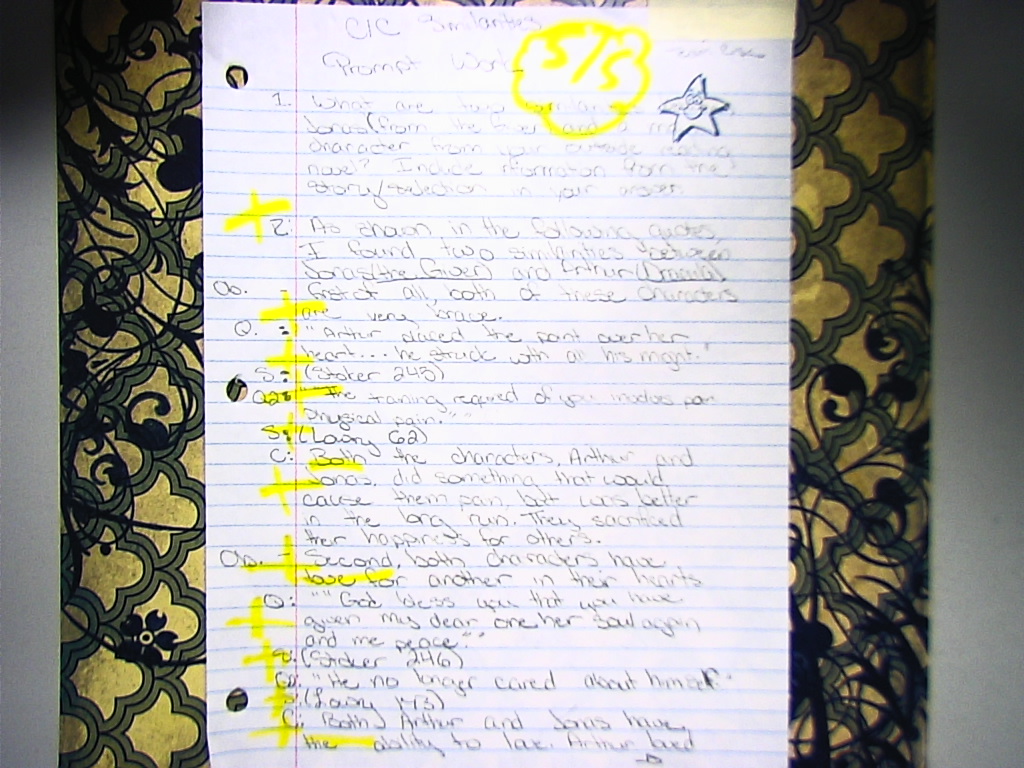 C/C Similarities
Prompt Work
5/5
1. What are two
Jonas (from the Giver) and a
character from your outside reading
novel? Include information from the
story/selection in your answer.
2. As shown in the following quotes,
I found two similarities between
Jonas (the Giver) and Arthur (Dracula)
Ob. - First of all, both of these characters
are very brave.
Q: "Arthur placed the point over her
heart... he struck with all his might."
S: (Stoker 245)
Q2: "The training required of you involves pain
Physical pain.""
S: (Lowry 62)
C: Both the characters, Arthur and
Jonas, did something that would
cause them pain, but was better
in the long run. They sacrificed
their happiness for others.
Ob. - Second, both characters have
love for another in their hearts
Q: ""God bless you that you have
given my dear one her soul again
and me peace""
S: (Stoker 246)
Q2: "He no longer cared about himself."
S: (Lowry
C: Both Arthur and Jonas have
the ability to love. Arthur loved